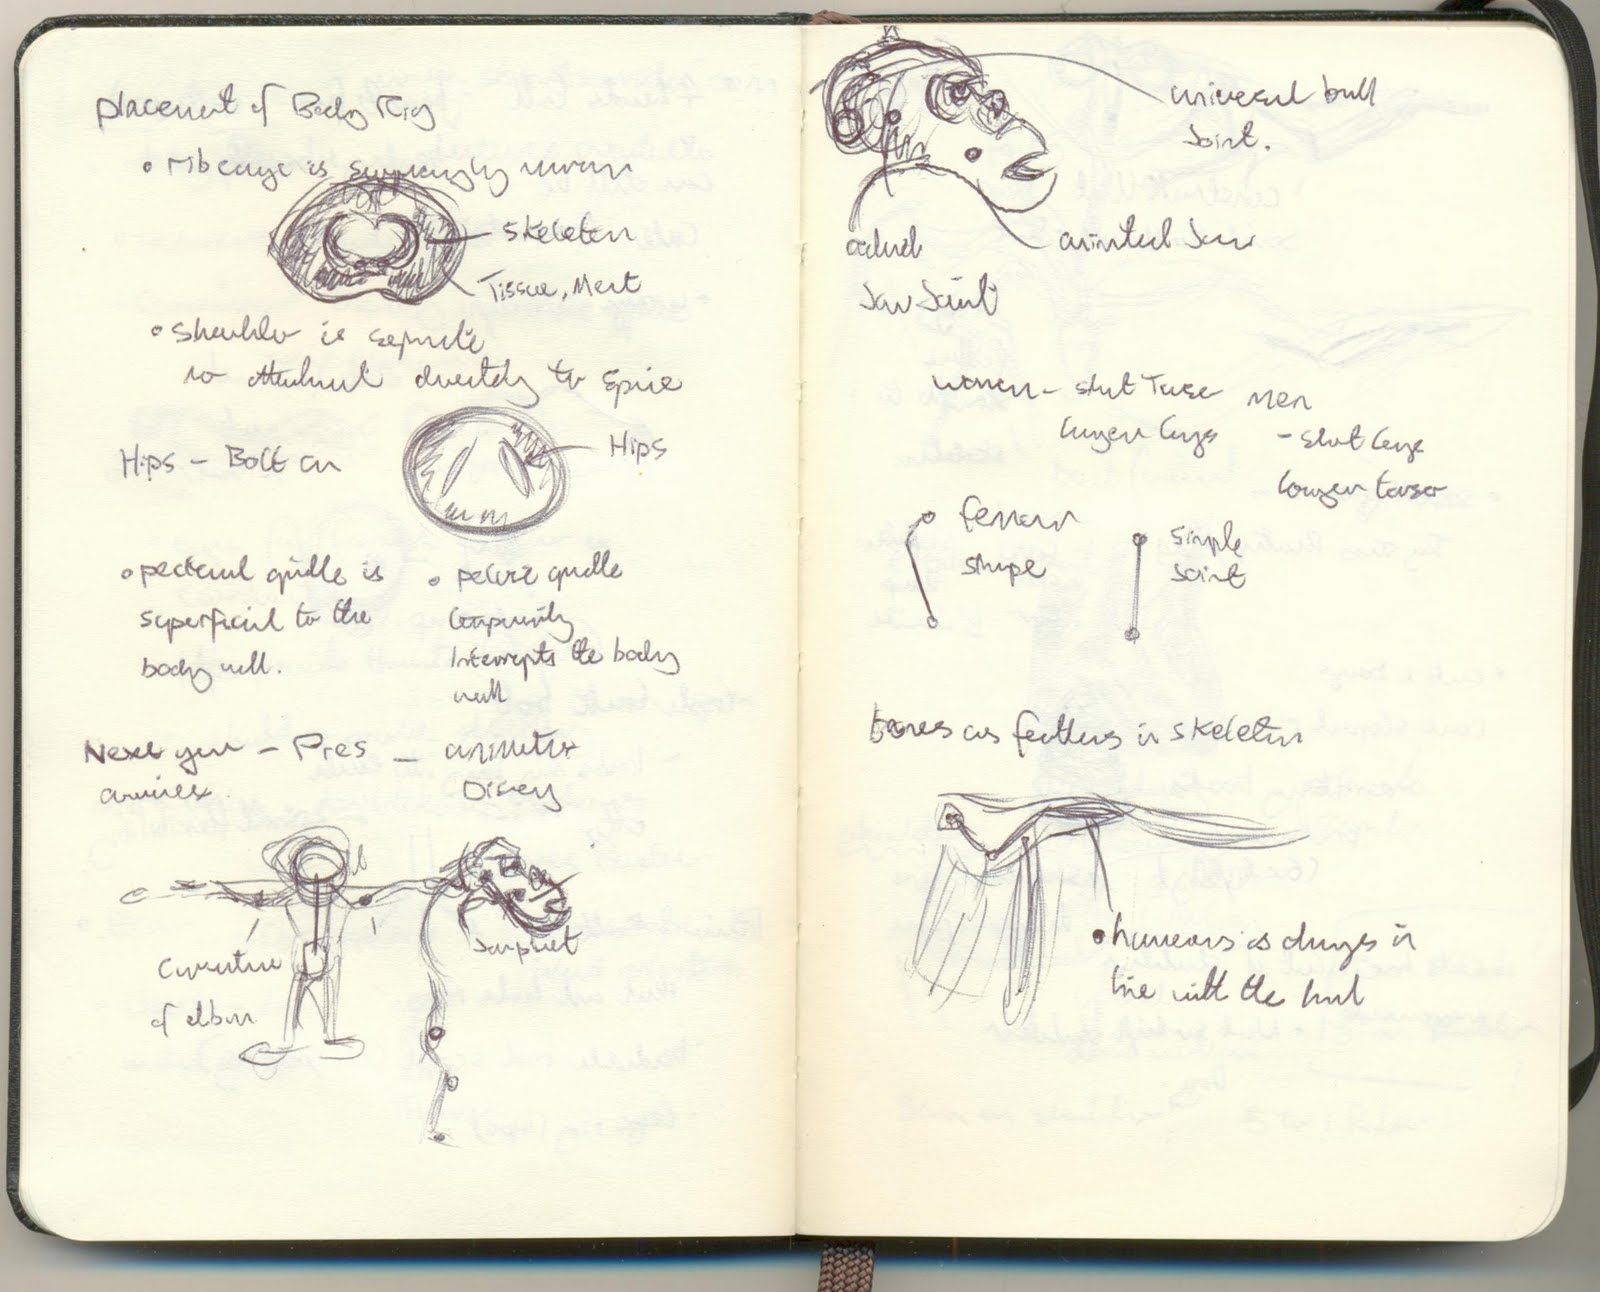 Placement of Body Rig
• rib cage is surprisingly narrow
Skeleton
Tissue, Meat
• Shoulder is separate
no attachment directly to Spine
Hips – Bolt on
Hips
• pectoral girdle is
superficial to the
body wall.
• pelvic girdle
completely
Interrupts the body
wall
Next year – Pres – animatrix
Disney
Curvature
of elbow
universal ball
Joint.
actual
Jaw Joint
animated Jaw
women – short Torso
longer legs
Men
– short legs
longer torso
femur
shape
simple
joint
bones as feathers in skeleton
• humerus is always in
line with the hand